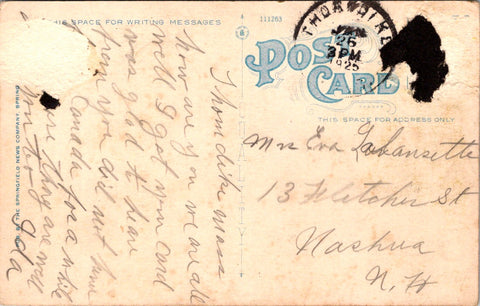 THIS SPACE FOR WRITING MESSAGES
111263
THORNDIKE
JAN
26
3 PM
1925
POST
CARD
THIS SPACE FOR ADDRESS ONLY
BY THE SPRINGFIELD NEWS COMPANY, SPRING
Thorndike Mass
how are you we are all
well I got your card
was glad to hear
from you did not hear
Canada for a while
they are well
Ida
Mrs Eva
13 Fletcher St
Nashua
N. H